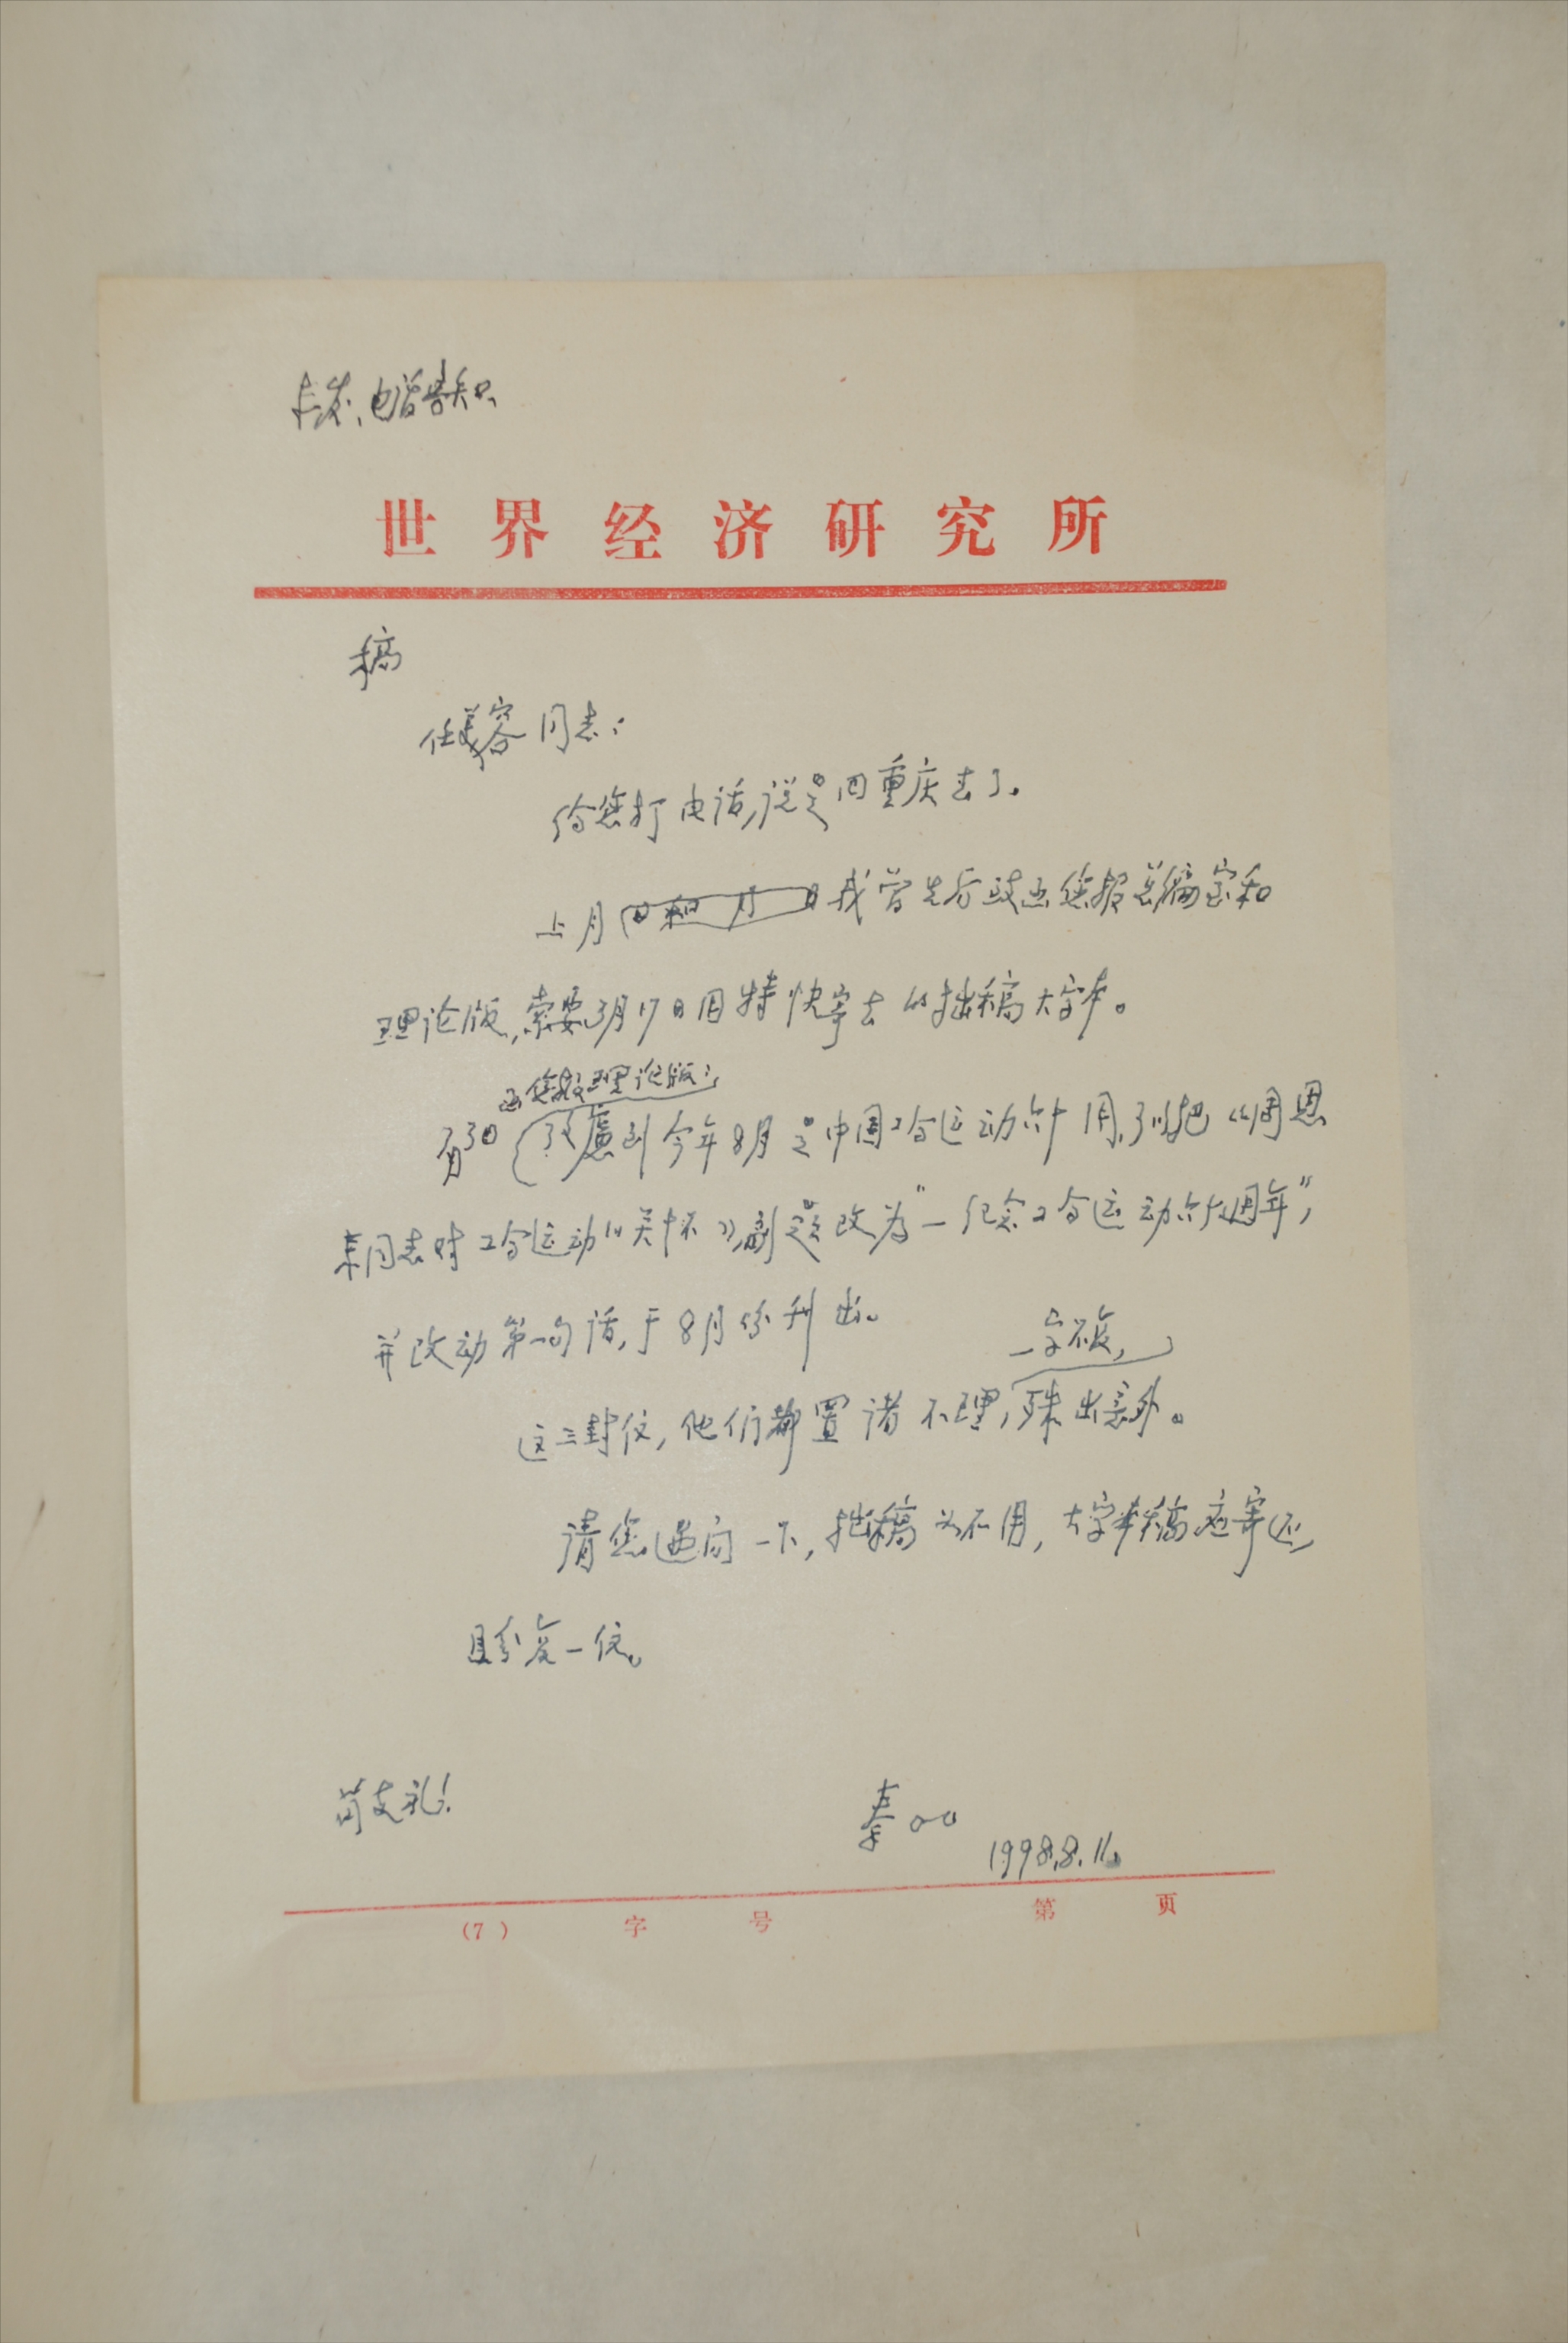 未发、电话告知
世界经济研究所
稿
任美容同志:
给您打电话,说是回重庆去了。
上月 我曾先后致函您报总编室和
理论版,索要3月17日用特快寄去的拙稿大字本。
函您报理论版:
3日 考虑到今年8月是中国工合运动六十周,可以把《周恩
来同志对工合运动的关怀》,副题改为“—纪念工合运动六十周年”,
并改动第一句话,于8月份刊出。
一字不复,
这三封信,他们都置诸不理,殊出意外。
请您过问一下,拙稿如不用,大字本稿应寄还,
且盼复一信。
简支礼!
秦〇〇
1998.8.11.
(7) 字 号 第 页